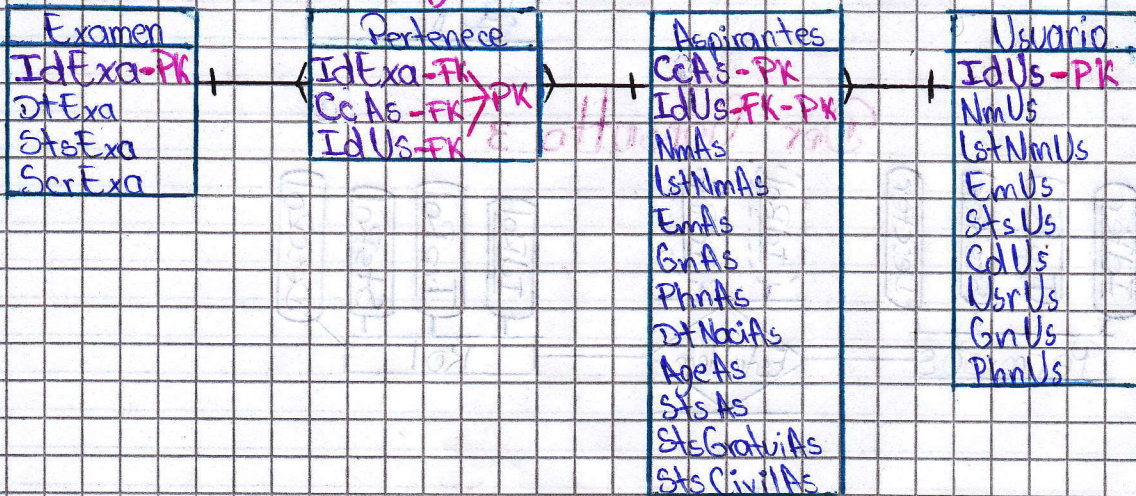 Examen
IdExa-PK
DtExa
StsExa
ScrExa
Pertenece
IdExa-FK
CcAs-FK
IdUs-FK
PK
Aspirantes
CcAs-PK
IdUs-FK-PK
NmAs
lstNmAs
EmAs
GnAs
PhnAs
DtNaciAs
AgeAs
StsAs
StsGratuiAs
StsCivilAs
Usuario
IdUs-PK
NmUs
lstNmUs
EmUs
StsUs
CdUs
UsrUs
GnUs
PhnUs